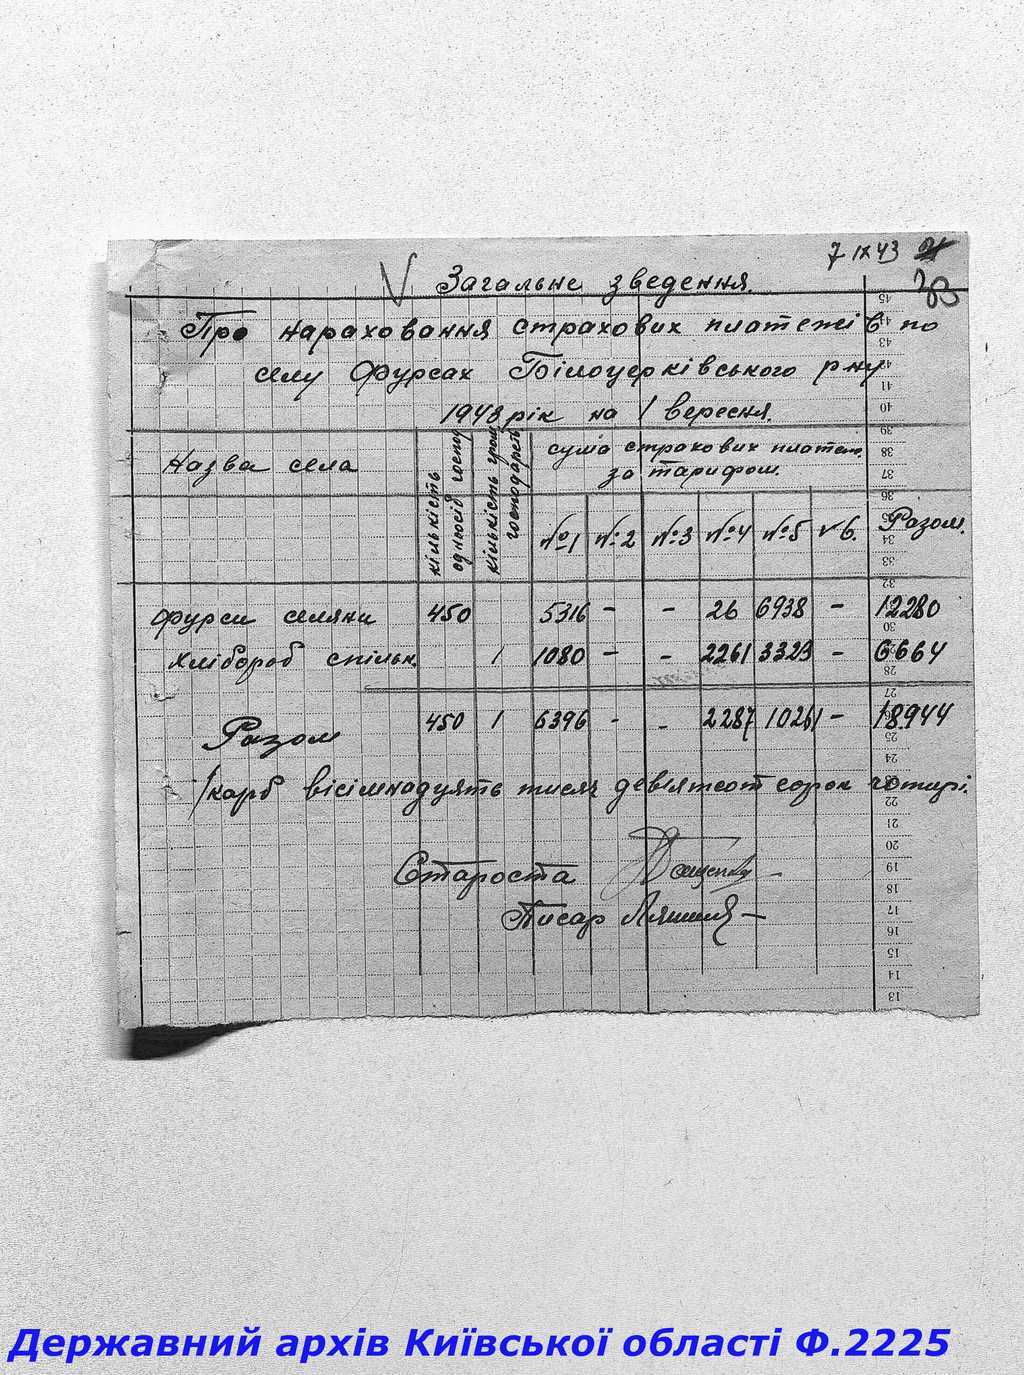 7 IX 43 21
33
V Загальне зведення.
Про нараховання страхових платежів по
селу Фурсах Білоцерківського рну
1943 рік на 1 вересня.
Назва села
кількість одноосіб господ
кількість гром господарств
сума страхових платеж.
за тарифом.
№1 №2 №3 №4 №5 №6. Разом.
Фурси селяни 450 5316 – – 26 6938 – 12280
Хлібороб спільн. 1 1080 – – 2261 3323 – 6664
Разом 450 1 6396 – – 2287 10261 – 18944
/карб вісімнадцять тисяч девятсот сорок чотирі.
Староста
Писар
45
44
43
42
41
40
39
38
37
36
35
34
33
32
30
28
27
25
24
22
21
20
19
18
17
16
15
14
13
Державний архів Київської області Ф.2225